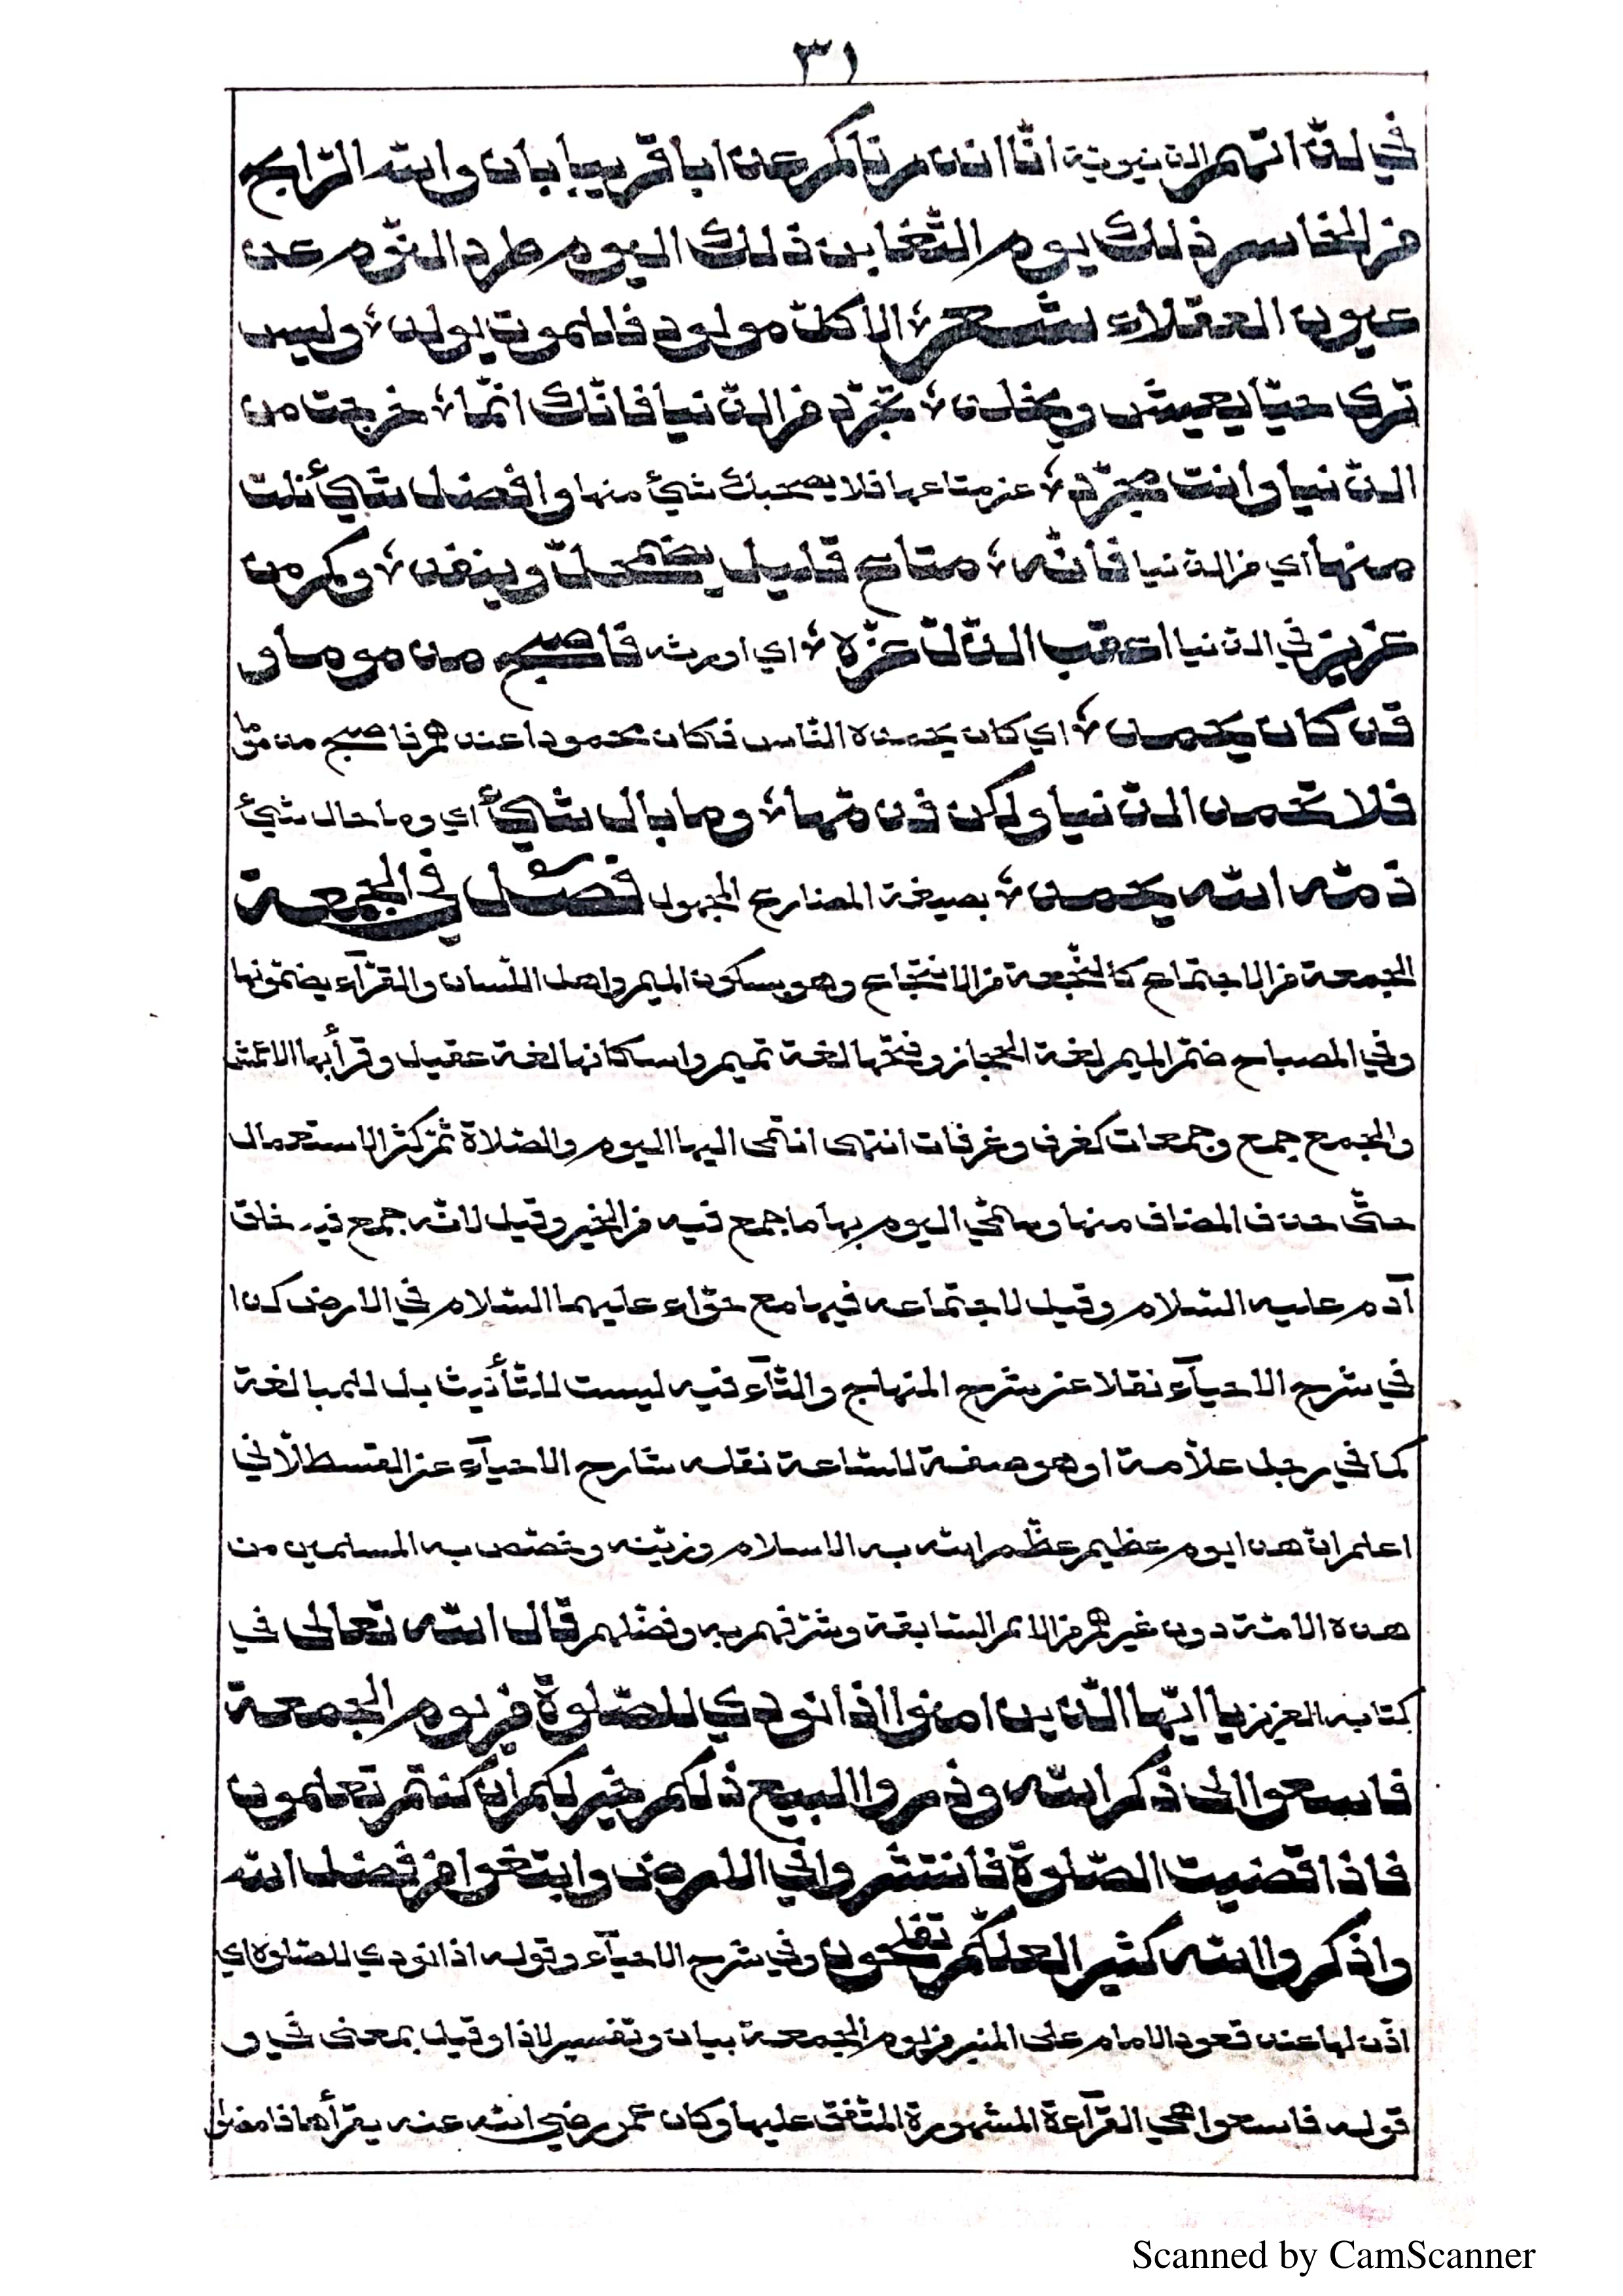 ٣١
في لذاتهم الدنيوية انّا انذرناكم عذابا قريبا بان والله الرّابح
من الخاسر ذلك يوم التّغابن ذلك اليوم طرد النّوم عن
عيون العقلاء شعر ؛ الا كلّ مولود فللموت يولد ؛ وليس
ترى حيّا يعيش ويخلد ؛ تجرّد من الدّنيا فانّك انّما ؛ خرجت من
الدّنيا وانت مجرّد ؛ عن متاعها فلا يصحبك شيئ منها وافضل شيئ نلت
منها اي من الدنيا فانّه ؛ متاع قليل يضمحلّ وينفد ؛ وكم من
عزيز في الدنيا اعقب الذّلّ عزّه ؛ اي اورثه فاصبح مذموما و
قد كان يحمد ؛ اي كان يحمده النّاس فكان محمودا عندهم فاصبح مذمّما
فلا تحمد الدّنيا ولكن فذمّها ؛ وما بال شيئ أي وما حال شيئ
ذمّه الله يحمد ؛ بصيغة المضارع المجهول فصل في الجمعة
الجمعة من الاجتماع كالنّجعة من الانتجاع وهو بسكون الميم واهل اللّسان والقرّآء يضمّونها
وفي المصباح ضمّ الميم لغة الحجاز وفتحها لغة تميم واسكانها لغة عقيل وقرأ بها الاعمش
والجمع جمع وجمعات كغرف وغرفات انتهى انتمى اليها اليوم والصّلاة ثمّ كثر الاستعمال
حتّى حذف المضاف منها وسمّي اليوم بها ما جمع فيه من الخير وقيل لانّه جمع فيه خلق
آدم عليه السّلام وقيل لاجتماعه فيها مع حوّاء عليهما السّلام في الارض كذا
في شرح الاحيآء نقلا عن شرح المنهاج والتّآء فيه ليست للتّأنيث بل للمبالغة
كما في رجل علاّمة او هو صفة للسّاعة نقله شارح الاحيآء عن القسطلاّني
اعلم انّ هذا يوم عظيم عظّم الله به الاسلام وزيّنه وخصّص به المسلمين من
هذه الامّة دون غيرهم من الامم السّابقة وشرّفهم به وفضّلهم قال الله تعالى في
كتابه العزيز يا ايّها الّذين امنوا اذا نودي للصّلوة من يوم الجمعة
فاسعوا الى ذكر الله وذروا البيع ذلكم خير لكم ان كنتم تعلمون
فاذا قضيت الصّلوة فانتشروا في الارض وابتغوا من فضل الله
واذكروا الله كثيرا لعلّكم تفلحون وفي شرح الاحيآء وقوله اذا نودي للصّلوة اي
اذّن لها عند قعود الامام على المنبر من يوم الجمعة بيان وتفسير لاذا وقيل بمعنى في و
قوله فاسعوا هي القرآءة المشهورة المتّفق عليها وكان عمر رضي الله عنه يقرأها فامضوا
Scanned by CamScanner